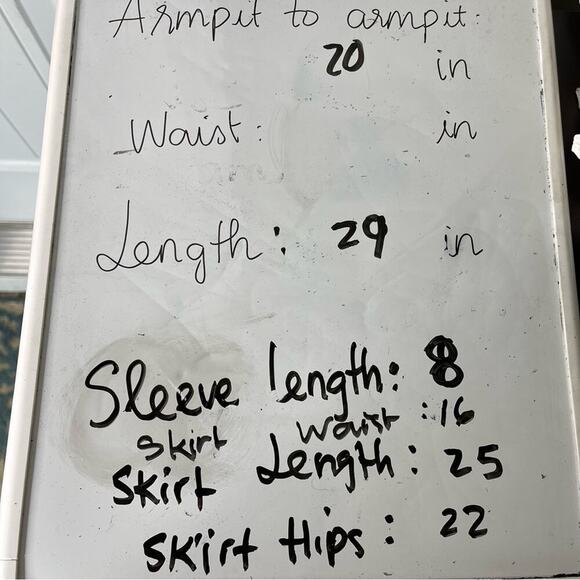 Armpit to armpit:
20 in
Waist: in
Length: 29 in
Sleeve length: 8
Skirt Waist: 16
Skirt Length: 25
Skirt Hips: 22